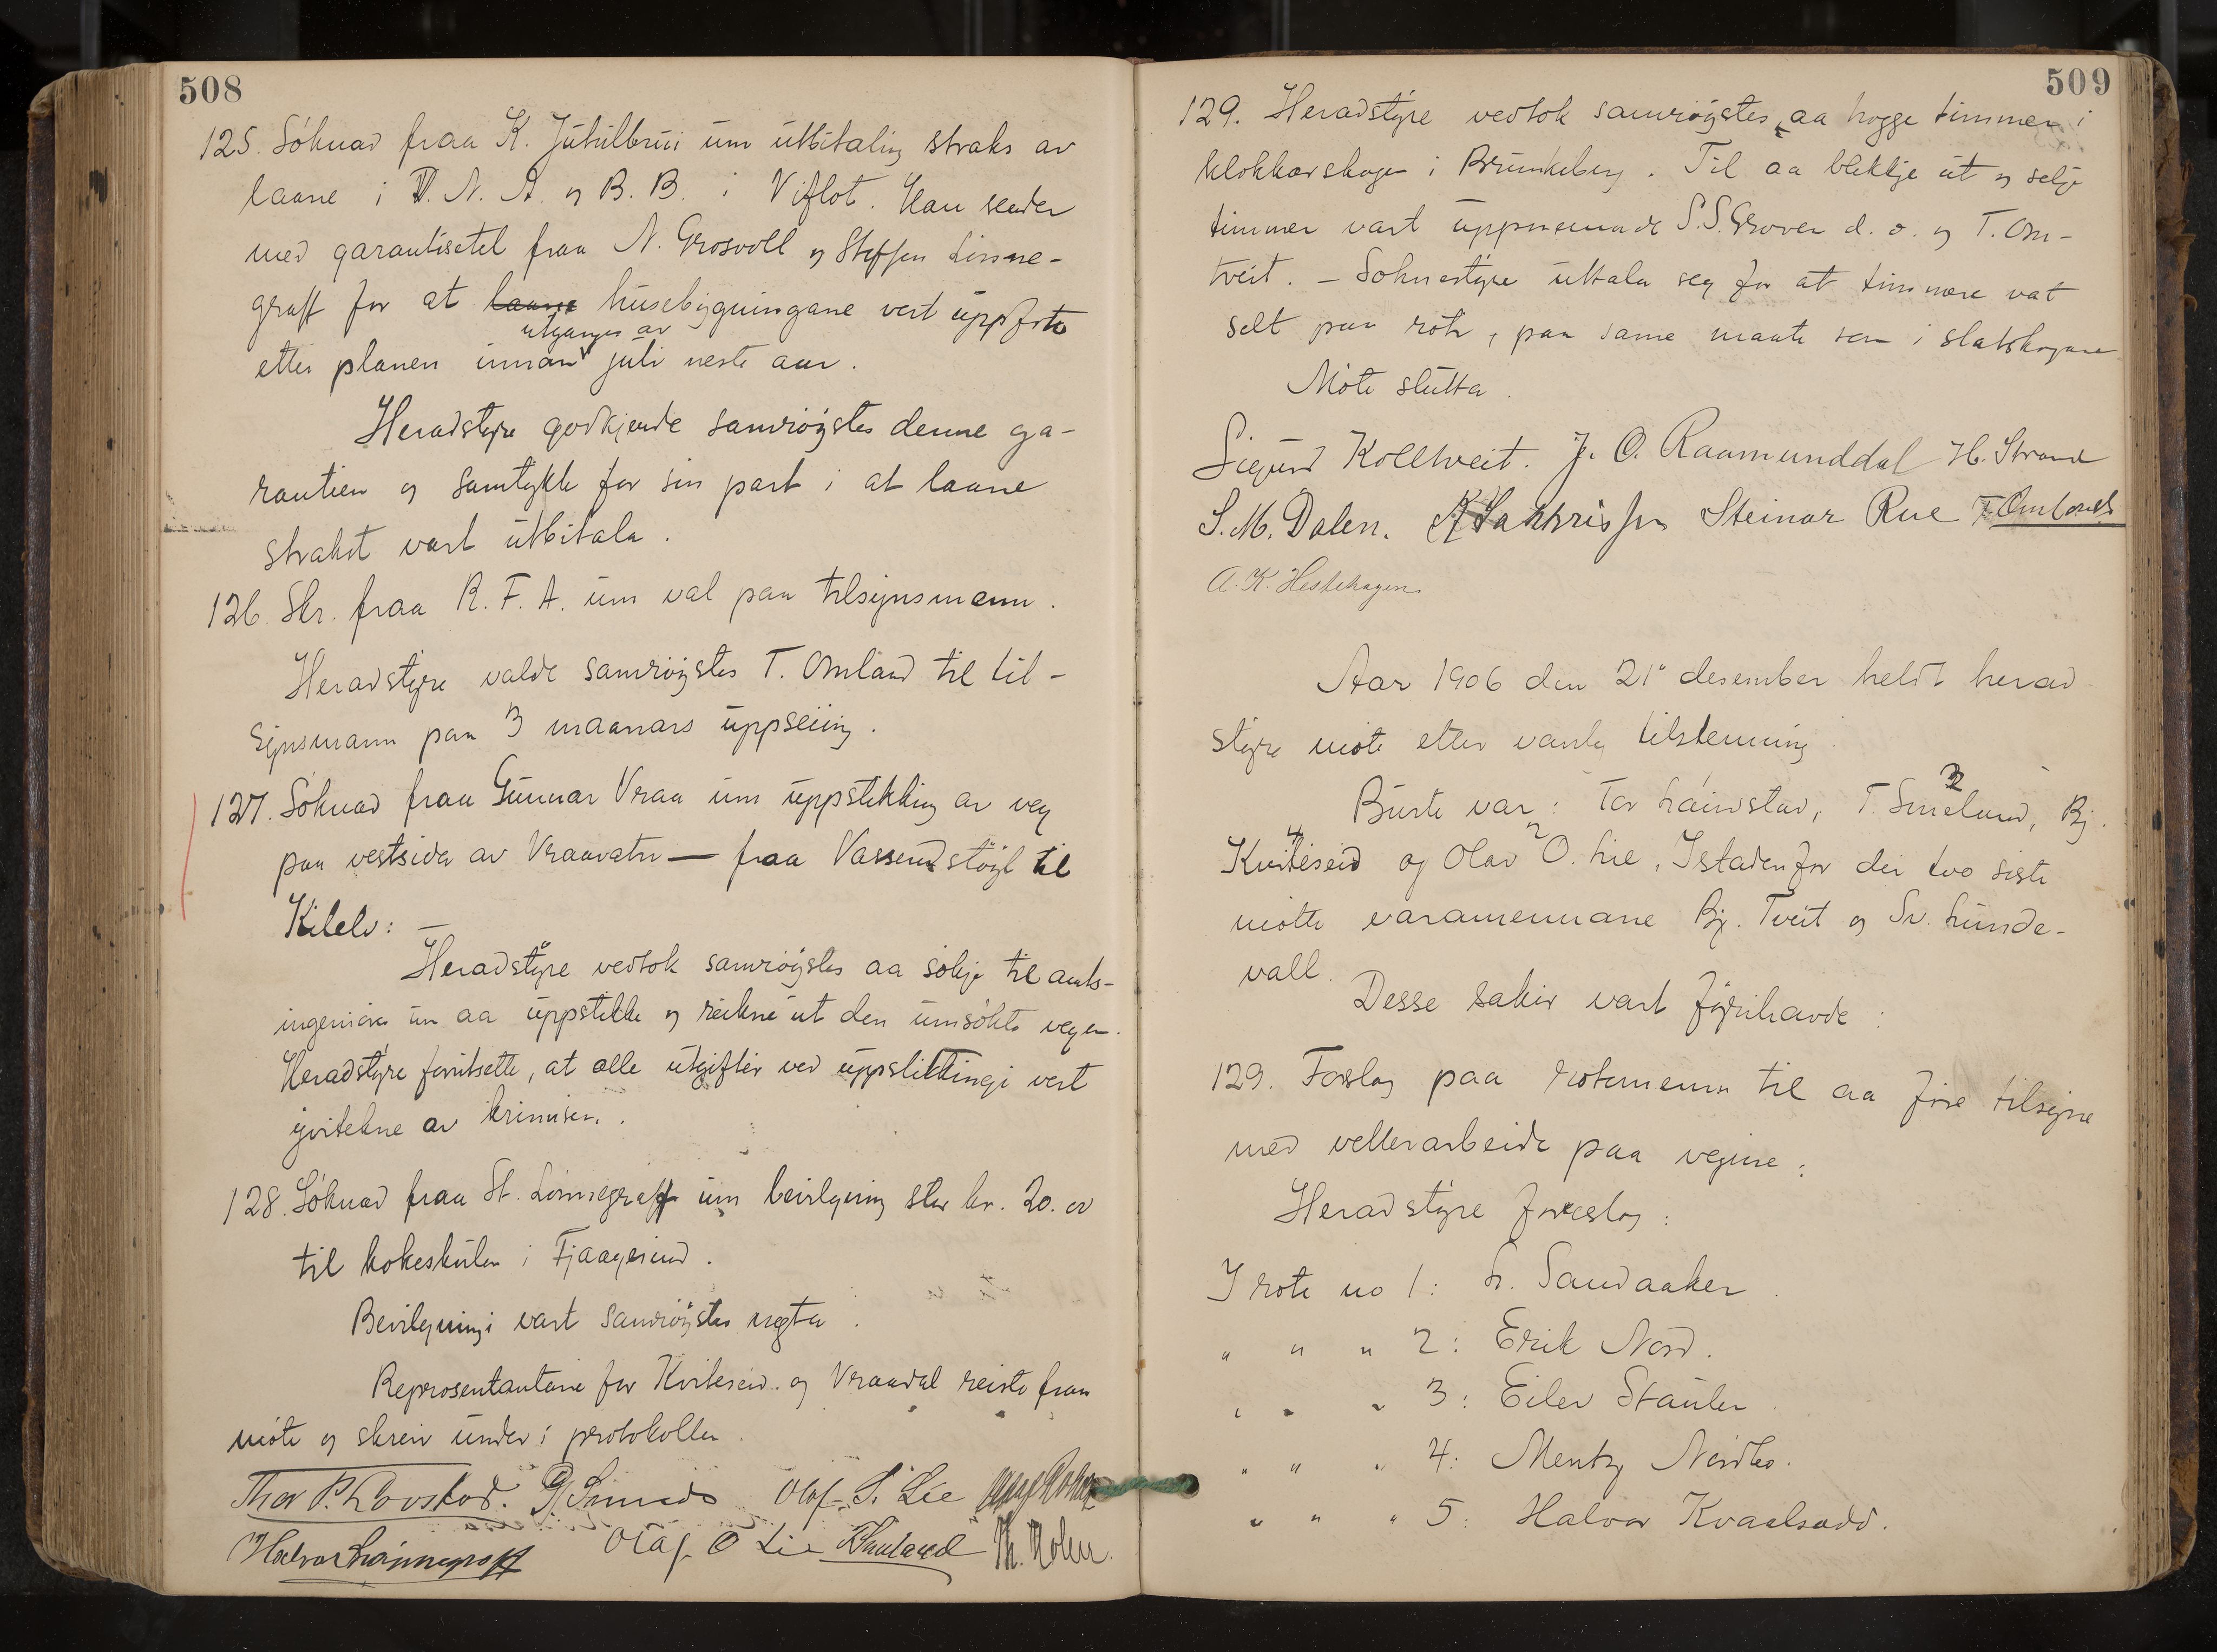 508
125. Söknad fraa K. Jutulbrui um utbitaling straks av
laane i D. N. A. og B. B. i Viflot. Han sender
med garantisetel fraa N. Grosvoll og Steffen Linne-
graff for at laane husebygningane vert uppförte
utgangen av
etter planen innan juli neste aar.
Heradstyre godkjende samröystes denne ga-
rantien og samtykte for sin part i at laane
strakst vart utbitala.
126. Skr. fraa R. F. A. um val paa tilsynsmann.
Heradstyre valde samröystes T. Omland til til-
synsmann paa 3 maanars uppseiing.
127. Söknad fraa Gunnar Vraa um uppstikking av veg
paa vestsida av Vraavatn — fraa Vassendstöyl til
Kilelv: —
Heradstyre vedtok samröystes aa sökje til amts-
ingeniören um aa uppstikke og reikne ut den umsökte vegen.
Heradstyre fyritsette, at alle utgifter ved uppstikkingi vert
yvitekne av
128. Söknad fraa St. Lönnegraff um beivlgning stor kr. 20.00
til kokeskulen i Fjaagesund.
Bevilgningi vart samröystes negta.
Representantane for Kviteseid og Vraadal reiste fraa
möte og skreiv under i protokollen.
Thor P. Lovstad. Olaf S. Lie
Halvor Lönnegraff Olaf O Lie T Smeland Th. Holen.
509
129. Heradstyre vedtok samröystes aa hogge timmer i
klokkarskogen i Brunkeberg. Til aa blekkje ut og selje
timmer vart uppnemnde S. S. Groven d. o. og T. Om-
tveit. — Soknestyre uttala seg for at timmere vart
selt paa rot, paa same maate som i statskogane
Möte slutta.
Sigurd Kolltveit. J. O. Raamunddal H. Strand
S. M. Dalen. K Sakkrisson Steinar Rue T. Omtveit
A. K. Hestehagen
Aar 1906 den 21de desember heldt herad
styre möte etter vanleg tilstemning
Burte var: Tor Lauvstad, T. Smeland, Bj.
Kviteseid og Olav O. Lie. Istadenfor dei tvo siste
mötte varamennane Bj. Tveit og Sv. Lunde-
vall.
Desse sakir vart fyrihavde:
129. Forslag paa rotemenn til aa före tilsyne
med vetterarbeide paa vegine:
Heradstyre foreslog:
I rote no 1: L. Sandaaker
" " " 2: Erik Nord.
" " " 3: Eilev Staulen
" " " 4: Mentz Nordbö.
" " " 5: Halvor Kvaalsodd.